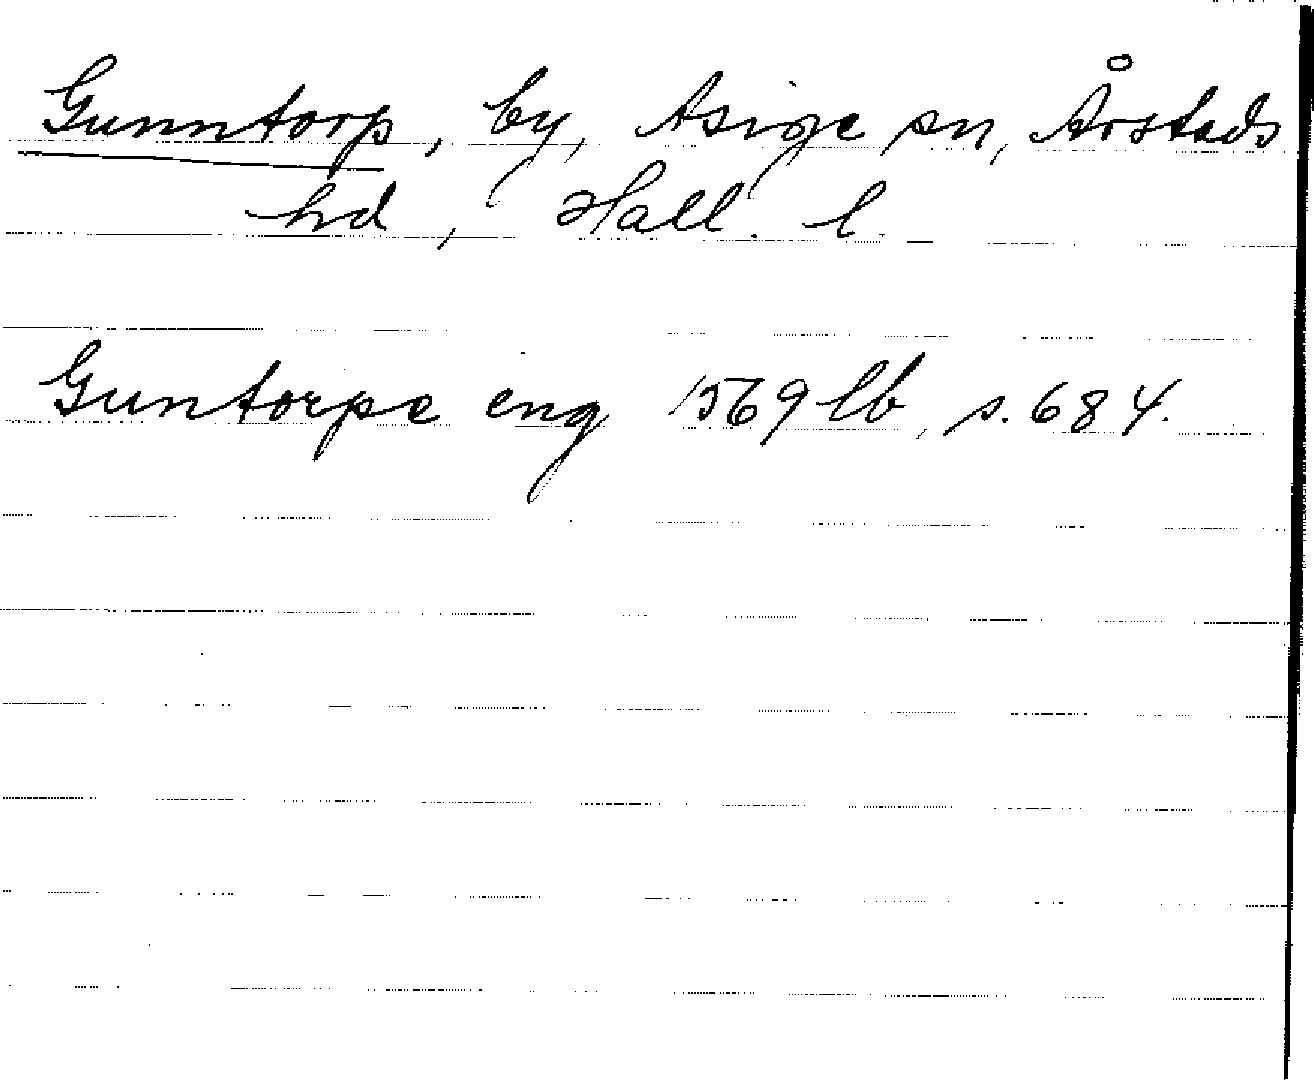 Gunntorp, by, Asige sn, Årstads
hd, Hall. l.
Guntorpe eng 1569 lb, s. 684.